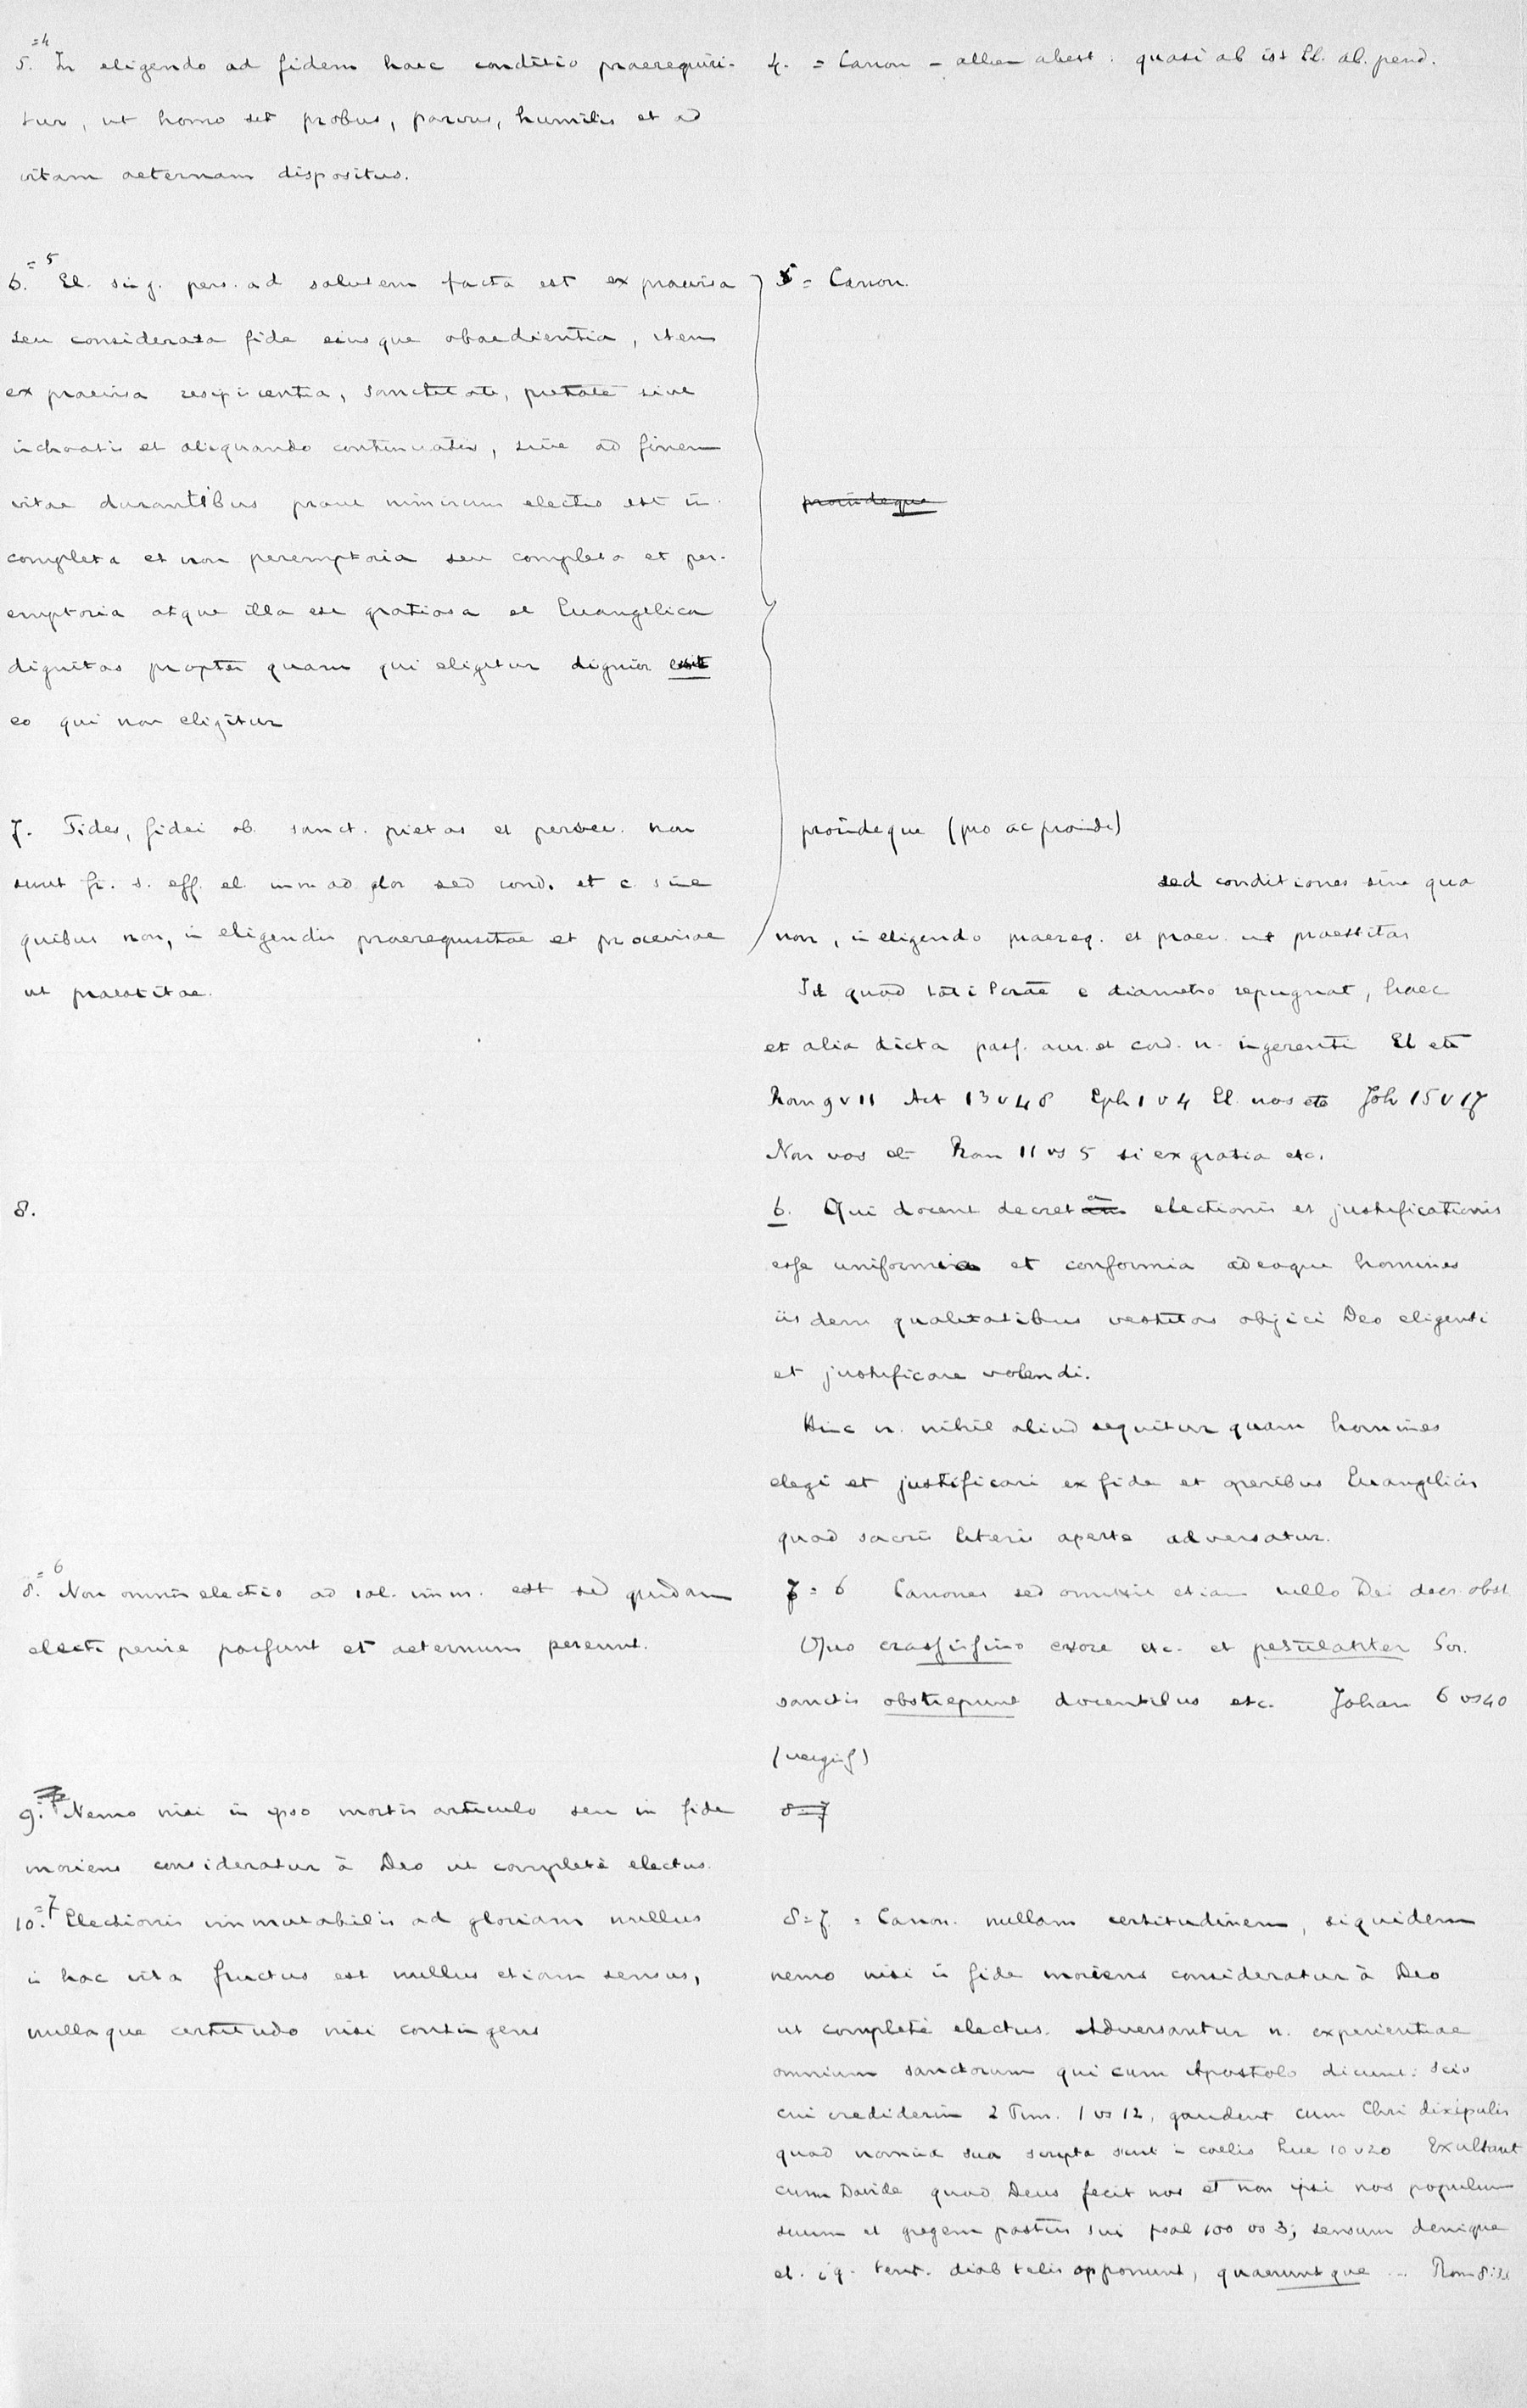 =4
5. In eligendo ad fidem haec conditio praerequiri-
tur, ut homo sit probus, parvus, humilis et ad
vitam aeternam dispositus.
4. = Canon - alleen abest: quasi ab ist El. ab. pend.
= 5
6. El. sing. pers. ad salutem facta est ex praevisa
seu considerata fide eiusque obaedientia, item
ex praevisa resipiscentia, sanctitate, pietate sive
inchoatis et aliquando continuatis, sive ad finem
vitae durantibus prout nimirum electio est in-
completa et non peremptoria seu completa et per-
emptoria atque illa est gratiosa et Euangelica
dignitas propter quam qui eligitur dignior
eo qui non eligitur
5 = Canon.
proindeque
7. Fides, fidei ob. sanct. pietas et persev. non
sunt fr. s. eff. el. imm ad glor sed cond. et c. sine
quibus non, in eligendis praerequisitae et praevisae
ut praestitae.
proindeque (pro ac proinde)
sed conditiones sine qua
non, in eligendo praereq. et praev. ut praestitas
Id quod toti Scrae e diametro repugnat, haec
et alia dicta pass. aur. et cord. n. ingerenti El etc
Rom 9 v 11 Act 13 v 48 Eph 1 v 4 El. nos etc Joh 15 v 17
Non vos etc Rom 11 vs 5 si ex gratia etc.
8.
6. Qui docent decreta electionis et justificationis
esse uniformia et conformia adeoque homines
iisdem qualitatibus vestitos objici Deo eligenti
et justificare volendi.
Hinc n. nihil aliud sequitur quam homines
elegi et justificari ex fide et operibus Euangelicis
quod sacris literis aperte adversatur.
= 6
8. Non omnis electio ad sal. imm. est sed quidam
electi perire possunt et aeternum pereunt.
7 = 6 Canones sed omittit etiam nullo Dei decr. obst
Quo crassissimo errore etc. et petulanter Scr.
sanctis obstrepunt docentibus etc. Johan 6 vs 40
9. Nemo nisi in ipso mortis articulo seu in fide
moriens consideratur à Deo ut completè electus.
8=7
=7
10. Electionis immutabilis ad gloriam nullus
in hac vita fructus est nullus etiam sensus,
nullaque certitudo nisi contingens
8=7 = Canon. nullam certitudinem, siquidem
nemo nisi in fide moriens consideratur à Deo
ut completè electus. Adversantur n. experientiae
omnium sanctorum qui cum Apostolo dicunt: Scio
cui crediderim 2 Tim. 1 vs 12, gaudent cum Chri discipulis
quod nomina sua scripta sunt in coelis Luc 10 v 20 Exultant
cum Davide quod Deus fecit nos et non ipsi nos populum
suum et gregem pastus sui psal 100 vs 3; sensum denique
el. ig. tent. diab telis opponunt, quaeruntque ... Rom 8:33